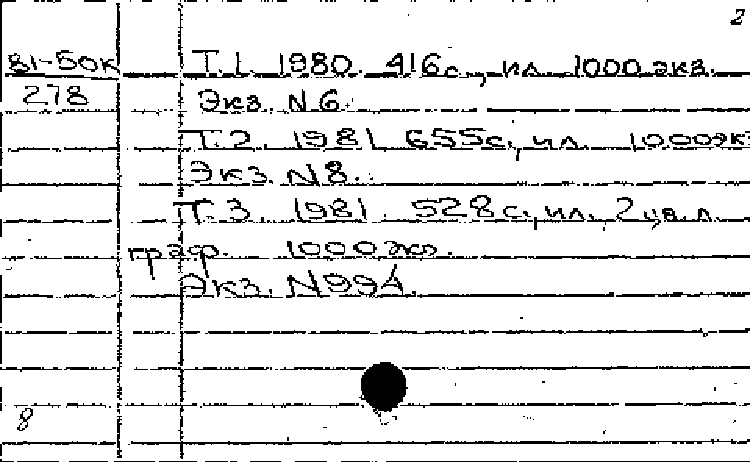 2
81-50к Т.1. 1980. 416с., ил. 1000 экз.
278 Экз. N 6.
Т.2. 1981 655с., ил. 1000 эк
Экз. N 8.
Т.3. 1981. 528 с., ил., 2 цв. л.
граф. 1000 экз.
Экз. N 994.
8